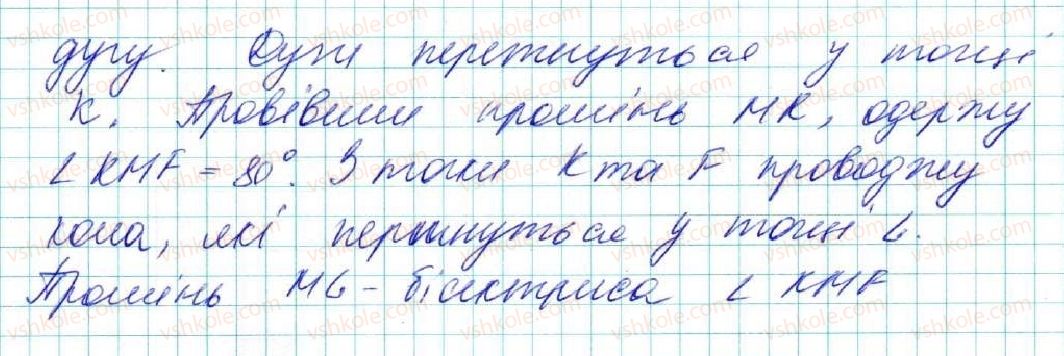 дугу. Дуги перетнуться у точці
К. Провівши промінь МК, одержу
∠KMF = 80°. З точки К та F проводжу
кола, які перетнуться у точці G.
Промінь MG – бісектриса ∠ KMF